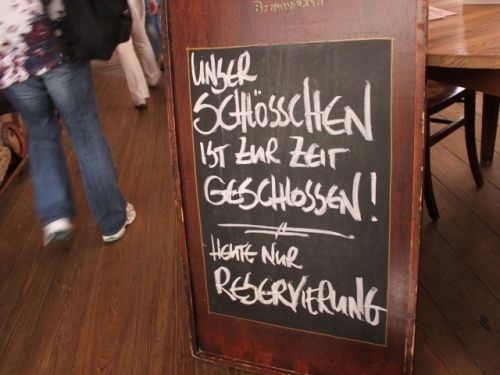 UNSER
SCHLÖSSCHEN
IST ZUR ZEIT
GESCHLOSSEN!
HEUTE NUR
RESERVIERUNG